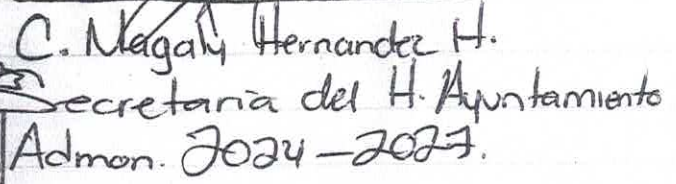 C. Magaly Hernandez H.
Secretaria del H. Ayuntamiento
Admon. 2024-2027.